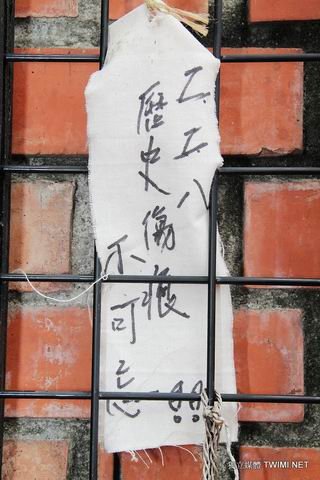 二二八
歷史傷痕
不可忘!!
獨立媒體 TWIMI.NET